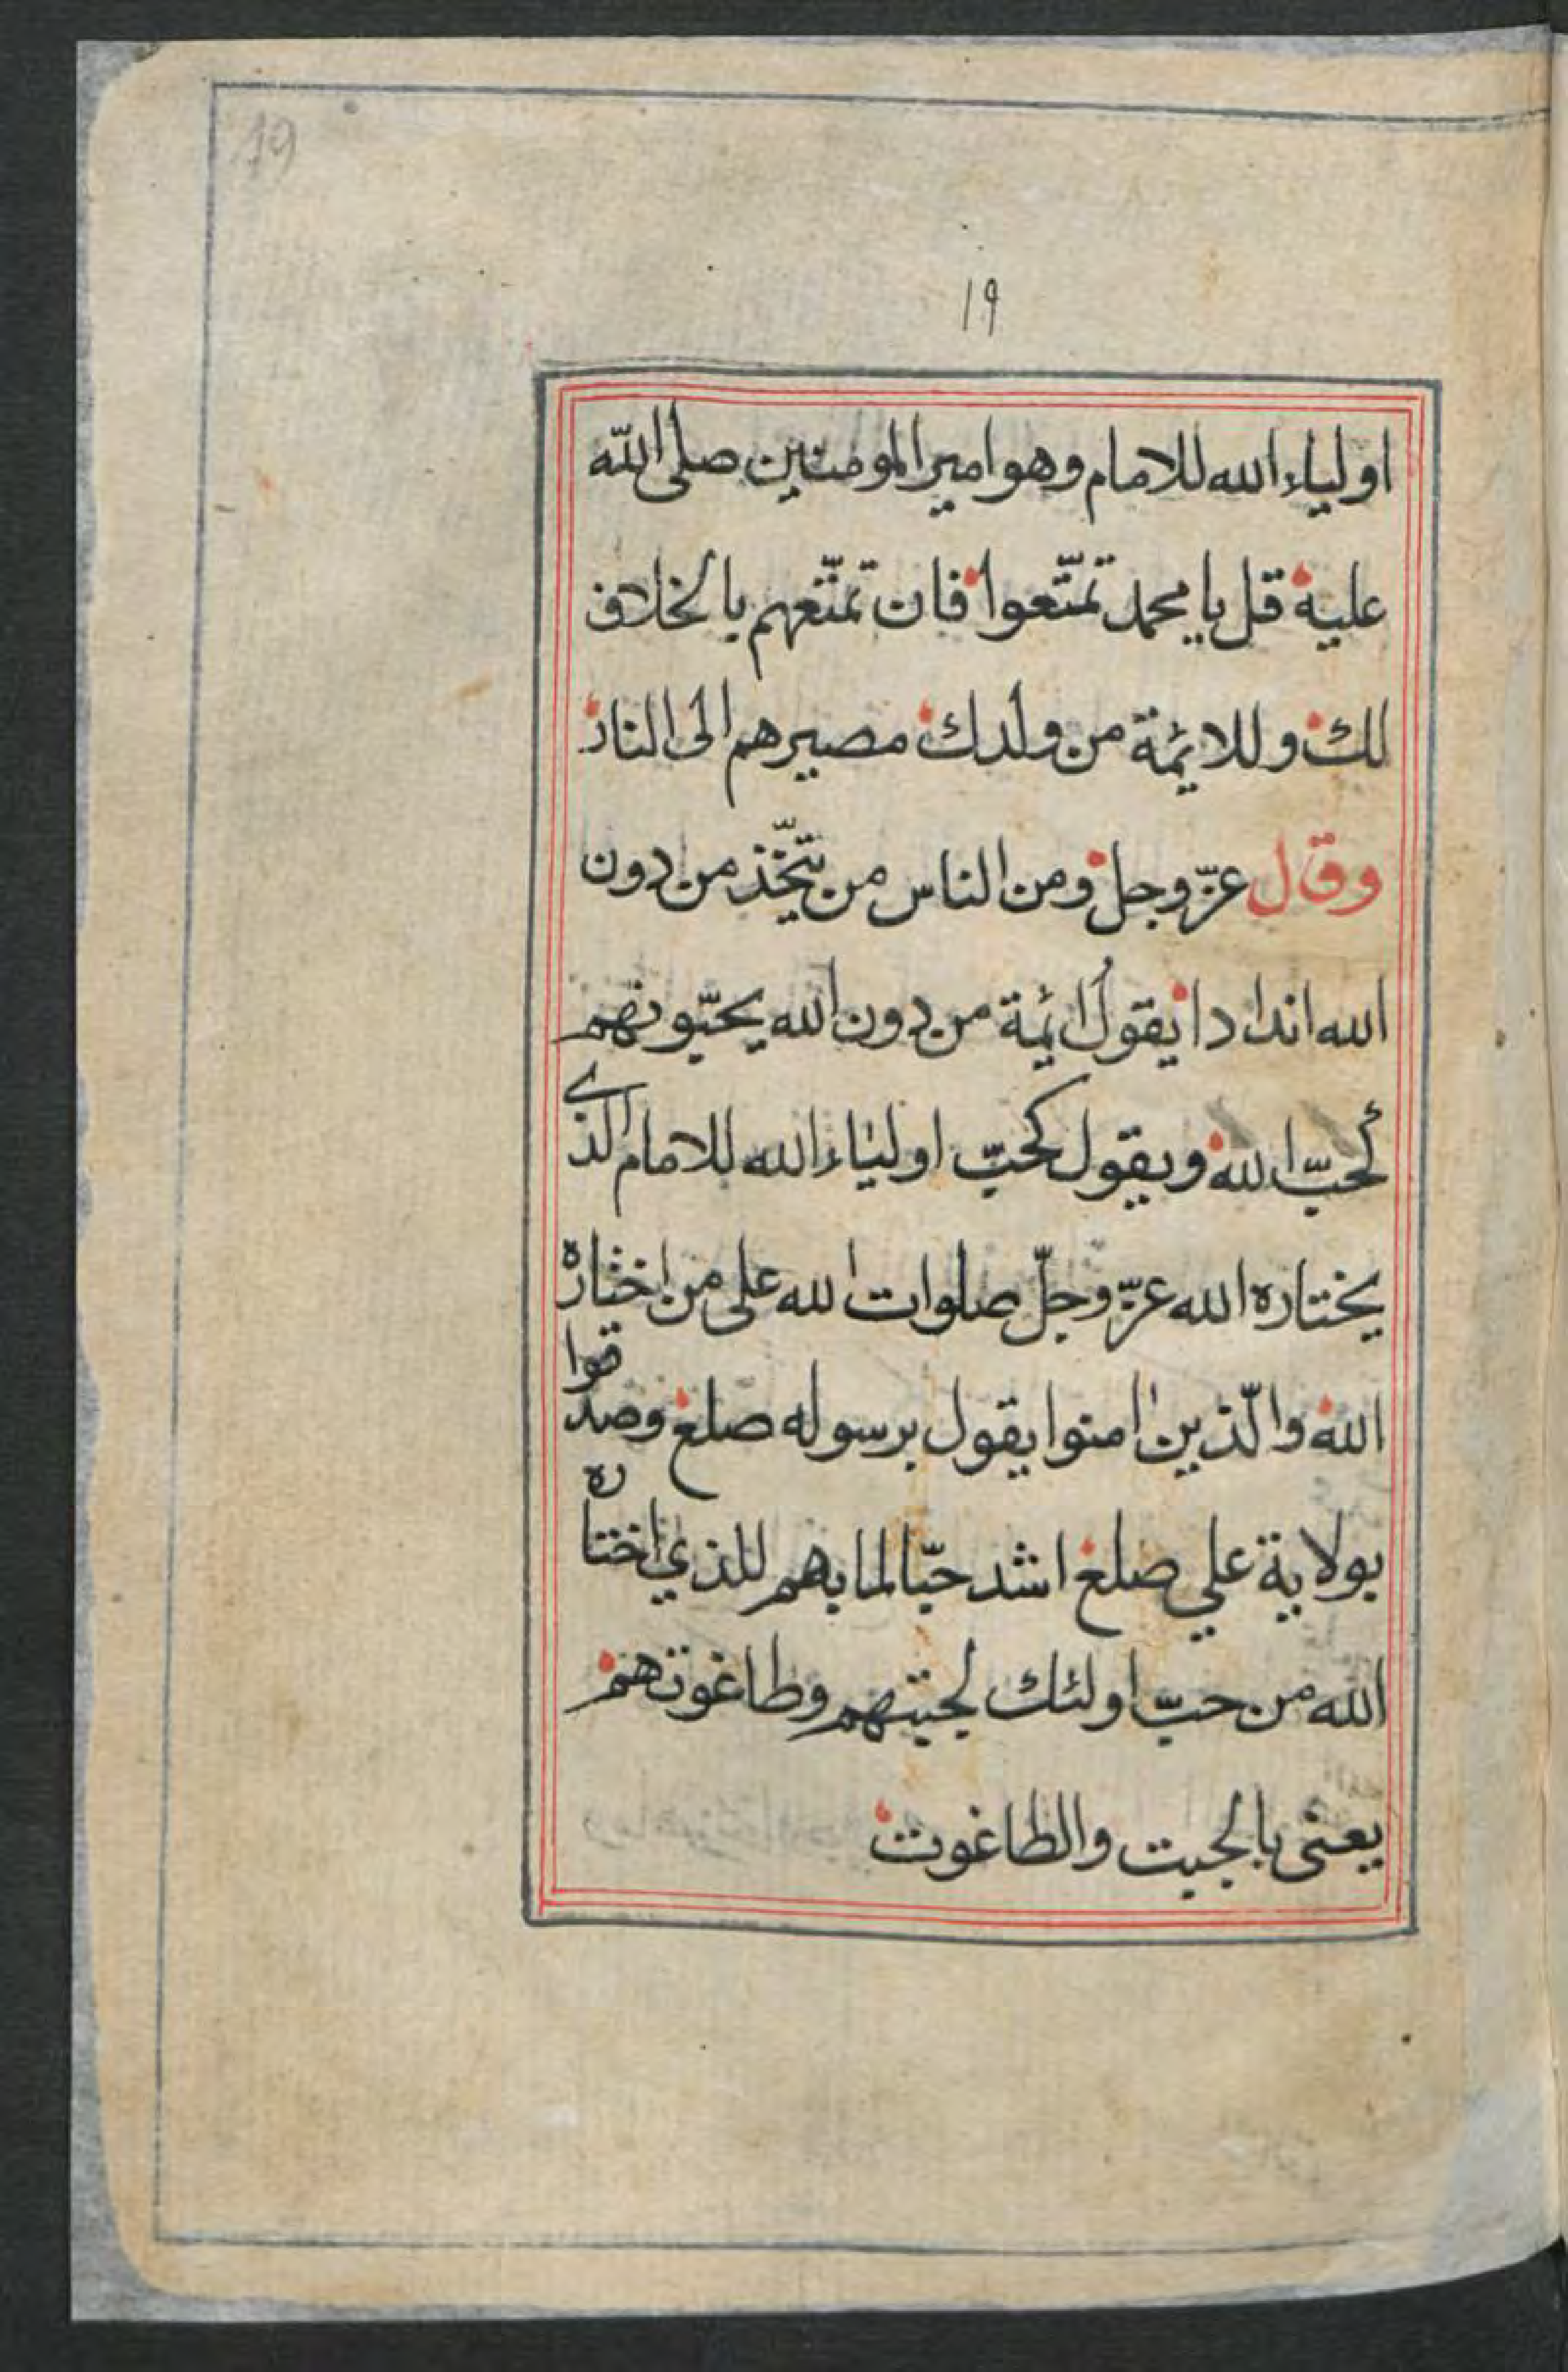 19
١٩
اولياء الله للامام وهو امير المومنين صلى الله
عليه قل يا محمد تمتّعوا فان تمتّعهم بالخلاف
لك وللائمة من ولدك مصيرهم الى النار
وقال عزّ وجل ومن الناس من يتّخذ من دون
الله اندادا يقول ائمة من دون الله يحبّونهم
كحبّ الله ويقول كحبّ اولياء الله للامام الذي
يختاره الله عزّ وجلّ صلوات الله على من اختاره
الله والّذين امنوا يقول برسوله صلع وصدقوا
بولاية علي صلع اشد حبّا لمابهم للذي اختاره
الله من حبّ اولئك لجبتهم وطاغوتهم
يعنى بالجبت والطاغوت